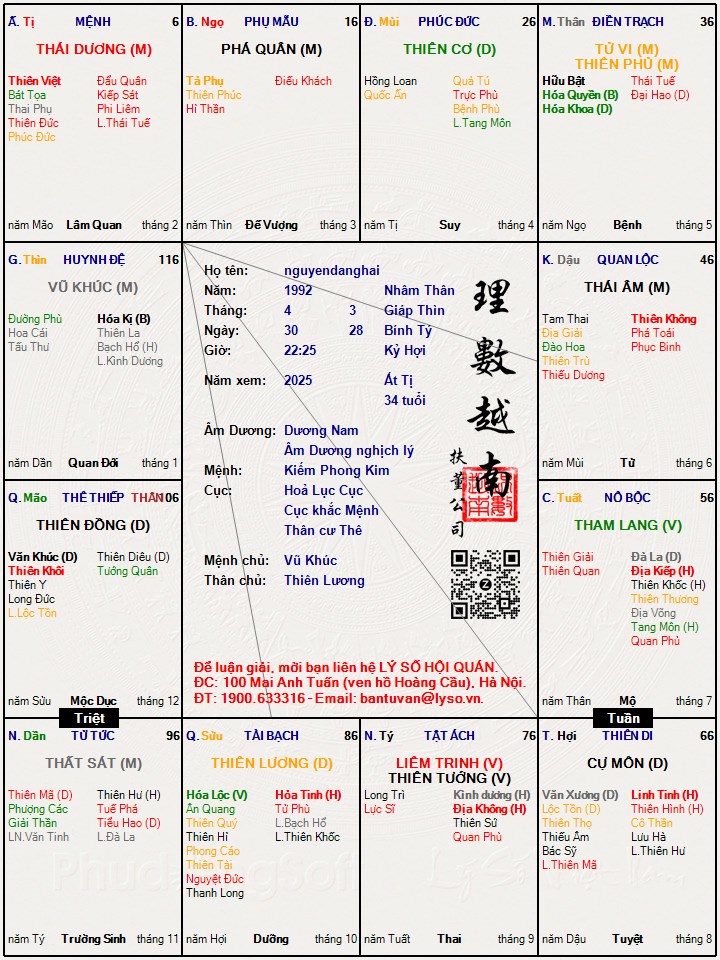 Ấ. Tị MỆNH 6
THÁI DƯƠNG (M)
Thiên Việt Đẩu Quân
Bát Tọa Kiếp Sát
Thai Phụ Phi Liêm
Thiên Đức L.Thái Tuế
Phúc Đức
năm Mão Lâm Quan tháng 2
B. Ngọ PHỤ MẪU 16
PHÁ QUÂN (M)
Tả Phụ Điếu Khách
Thiên Phúc
Hỉ Thần
năm Thìn Đế Vượng tháng 3
Đ. Mùi PHÚC ĐỨC 26
THIÊN CƠ (D)
Hồng Loan Quả Tú
Quốc Ấn Trực Phù
Bệnh Phù
L.Tang Môn
năm Tị Suy tháng 4
M. Thân ĐIỀN TRẠCH 36
TỬ VI (M)
THIÊN PHỦ (M)
Hữu Bật Thái Tuế
Hóa Quyền (B) Đại Hao (D)
Hóa Khoa (D)
năm Ngọ Bệnh tháng 5
G. Thìn HUYNH ĐỆ 116
VŨ KHÚC (M)
Đường Phù Hóa Kị (B)
Hoa Cái Thiên La
Tấu Thư Bạch Hổ (H)
L.Kình Dương
năm Dần Quan Đới tháng 1
Họ tên: nguyendanghai
Năm: 1992 Nhâm Thân
Tháng: 4 3 Giáp Thìn
Ngày: 30 28 Bính Tý
Giờ: 22:25 Kỷ Hợi
Năm xem: 2025 Ất Tị
34 tuổi
Âm Dương: Dương Nam
Âm Dương nghịch lý
Mệnh: Kiếm Phong Kim
Cục: Hoả Lục Cục
Cục khắc Mệnh
Thân cư Thê
Mệnh chủ: Vũ Khúc
Thân chủ: Thiên Lương
理數越南
扶董公司
Để luận giải, mời bạn liên hệ LÝ SỐ HỘI QUÁN.
ĐC: 100 Mai Anh Tuấn (ven hồ Hoàng Cầu), Hà Nội.
ĐT: 1900.633316 - Email: bantuvan@lyso.vn.
K. Dậu QUAN LỘC 46
THÁI ÂM (M)
Tam Thai Thiên Không
Địa Giải Phá Toái
Đào Hoa Phục Binh
Thiên Trù
Thiếu Dương
năm Mùi Tử tháng 6
Q. Mão THÊ THIẾP THÂN 106
THIÊN ĐỒNG (D)
Văn Khúc (D) Thiên Diêu (D)
Thiên Khôi Tướng Quân
Thiên Y
Long Đức
L.Lộc Tồn
năm Sửu Mộc Dục tháng 12
C. Tuất NÔ BỘC 56
THAM LANG (V)
Thiên Giải Đà La (D)
Thiên Quan Địa Kiếp (H)
Thiên Khốc (H)
Thiên Thương
Địa Võng
Tang Môn (H)
Quan Phủ
năm Thân Mộ tháng 7
Triệt
Tuần
N. Dần TỬ TỨC 96
THẤT SÁT (M)
Thiên Mã (D) Thiên Hư (H)
Phượng Các Tuế Phá
Giải Thần Tiểu Hao (D)
LN.Văn Tinh L.Đà La
năm Tý Trường Sinh tháng 11
Q. Sửu TÀI BẠCH 86
THIÊN LƯƠNG (D)
Hóa Lộc (V) Hỏa Tinh (H)
Ân Quang Tử Phù
Thiên Quý L.Bạch Hổ
Thiên Hỉ L.Thiên Khốc
Phong Cáo
Thiên Tài
Nguyệt Đức
Thanh Long
năm Hợi Dưỡng tháng 10
N. Tý TẬT ÁCH 76
LIÊM TRINH (V)
THIÊN TƯỚNG (V)
Long Trì Kình dương (H)
Lực Sĩ Địa Không (H)
Thiên Sứ
Quan Phù
năm Tuất Thai tháng 9
T. Hợi THIÊN DI 66
CỰ MÔN (D)
Văn Xương (D) Linh Tinh (H)
Lộc Tồn (D) Thiên Hình (H)
Thiên Thọ Cô Thần
Thiếu Âm Lưu Hà
Bác Sỹ L.Thiên Hư
L.Thiên Mã
năm Dậu Tuyệt tháng 8